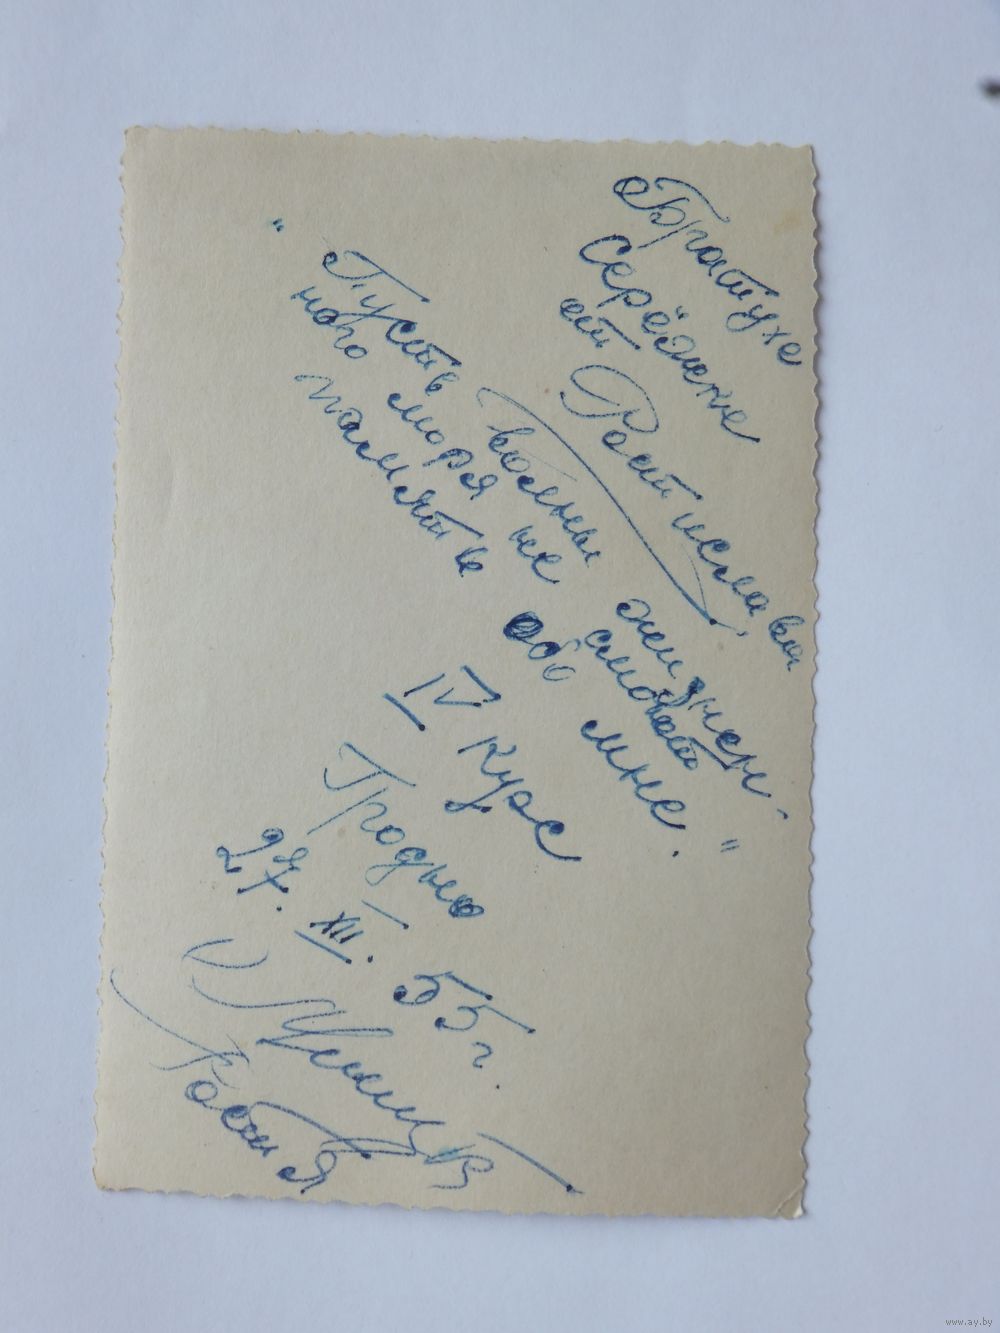 Братухе
Серёжке
от Ростислава
"Пусть волны жизнен-
ного моря не смоют
память обо мне."
IV курс
Гродно
27. XII. 55 г.
Ростя
www.ay.by